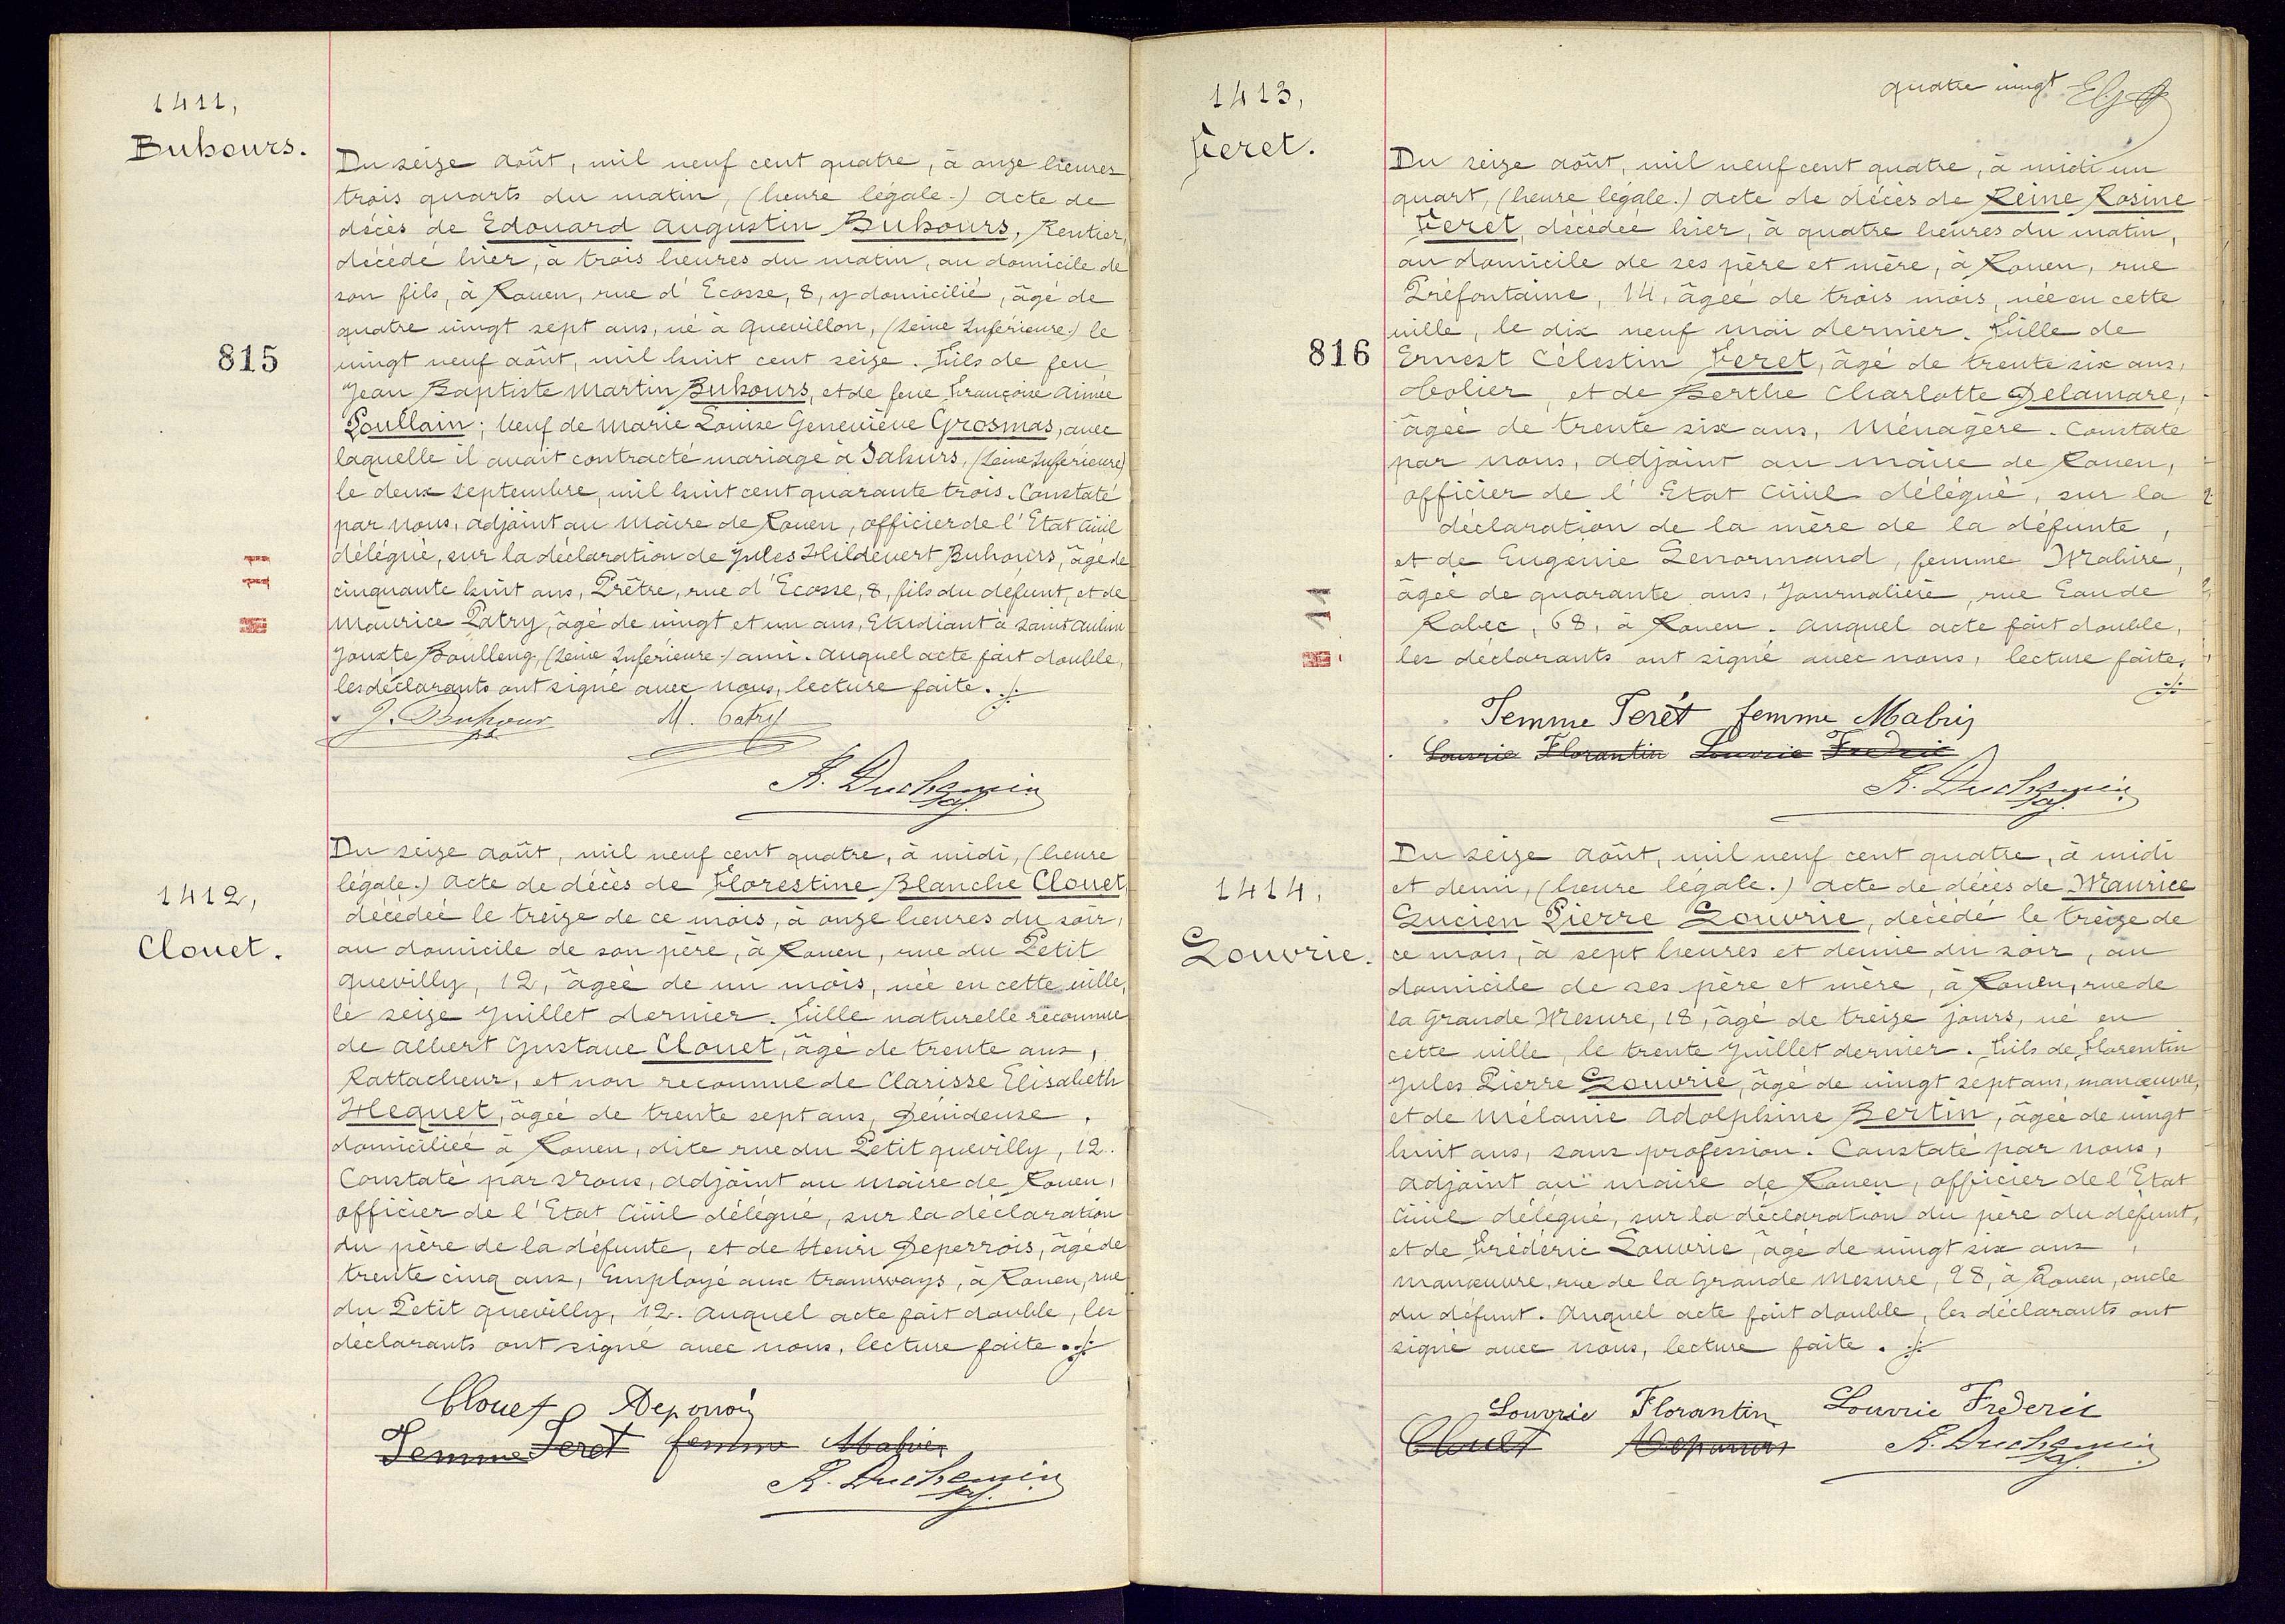 1411,
Buhours.
815
Du seize août, mil neuf cent quatre, à onze heures
trois quarts du matin, (heure légale.) acte de
décès de Edouard Augustin Buhours, Rentier,
décédé hier, à trois heures du matin, au domicile de
son fils, à Rouen, rue d'Ecosse, 8, y domicilié, âgé de
quatre vingt sept ans, né à Quevillon, (Seine Inférieure.) le
vingt neuf août, mil huit cent seize. Fils de feu
Jean Baptiste Martin Buhours, et de feue Françoise Aimée
Poullain; veuf de Marie Louise Geneviève Grosmas, avec
laquelle il avait contracté mariage à Sahurs, (Seine Inférieure)
le deux Septembre, mil huit cent quarante trois. Constaté
par nous, adjoint au Maire de Rouen, officier de l'Etat Civil
délégué, sur la déclaration de Jules Hildevert Buhours, âgé de
cinquante huit ans, Prêtre, rue d'Ecosse, 8, fils du défunt, et de
Maurice Patry, âgé de vingt et un ans, Etudiant à Saint Aubin
Jouxte Boulleng, (Seine Inférieure.) ami. Auquel acte fait double,
les déclarants ont signé avec nous, lecture faite. ./.
J. Buhour M. Patry
R. Duchemin
1412,
Clouet.
Du seize août, mil neuf cent quatre, à midi, (heure
légale.) Acte de décès de Florestine Blanche Clouet,
décédée le treize de ce mois, à onze heures du soir,
au domicile de son père, à Rouen, rue du Petit
Quevilly, 12, âgée de un mois, née en cette ville,
le seize Juillet dernier. Fille naturelle reconnue
de Albert Gustave Clouet, âgé de trente ans,
Rattacheur, et non reconnue de Clarisse Elisabeth
Hequet, âgée de trente sept ans, Dévideuse,
domiciliée à Rouen, dite rue du Petit Quevilly, 12.
Constaté par Nous, adjoint au maire de Rouen,
officier de l'Etat Civil délégué, sur la déclaration
du père de la défunte, et de Henri Deperrois, âgé de
trente cinq ans, Employé aux tramways, à Rouen, rue
du Petit Quevilly, 12. Auquel acte fait double, les
déclarants ont signé avec nous, lecture faite. ./.
Clouet Deperrois
Femme Feret femme Mabire
R. Duchemin
quatre vingt
1413,
Feret.
816
Du seize août, mil neuf cent quatre, à midi un
quart, (heure légale.) acte de décès de Reine Rosine
Feret, décédée hier, à quatre heures du matin,
au domicile de ses père et mère, à Rouen, rue
Préfontaine, 14, âgée de trois mois, née en cette
ville, le dix neuf mai dernier. Fille de
Ernest Célestin Feret, âgé de trente six ans,
Tolier, et de Berthe Charlotte Delamare,
âgée de trente six ans, Ménagère. Constaté
par nous, adjoint au maire de Rouen,
officier de l'Etat Civil délégué, sur la
déclaration de la mère de la défunte,
et de Eugenie Lenormand, femme Mabire,
âgée de quarante ans, Journalière, rue Eau de
Robec, 68, à Rouen. Auquel acte fait double,
les déclarants ont signé avec nous, lecture faite.
./.
Femme Ferét femme Mabire
Louvrie Florantin Louvrie Frederic
R. Duchemin
1414,
Louvrie.
Du seize août, mil neuf cent quatre, à midi
et demi, (heure légale.) acte de décès de Maurice
Lucien Pierre Louvrie, décédé le treize de
ce mois, à sept heures et demie du soir, au
domicile de ses père et mère, à Rouen, rue de
la Grande Mesure, 18, âgé de treize jours, né en
cette ville, le trente Juillet dernier. Fils de Florentin
Jules Pierre Louvrie, âgé de vingt sept ans, manœuvre,
et de Mélanie Adolphine Bertin, âgée de vingt
huit ans, sans profession. Constaté par nous,
adjoint au maire de Rouen, officier de l'Etat
Civil délégué, sur la déclaration du père du défunt,
et de Frédéric Louvrie, âgé de vingt six ans,
manœuvre, rue de la Grande Mesure, 28, à Rouen, oncle
du défunt. Auquel acte fait double, les déclarants ont
signé avec nous, lecture faite. ./.
Louvrie Florantin Louvrie Frederic
Clouet Deperrois R. Duchemin